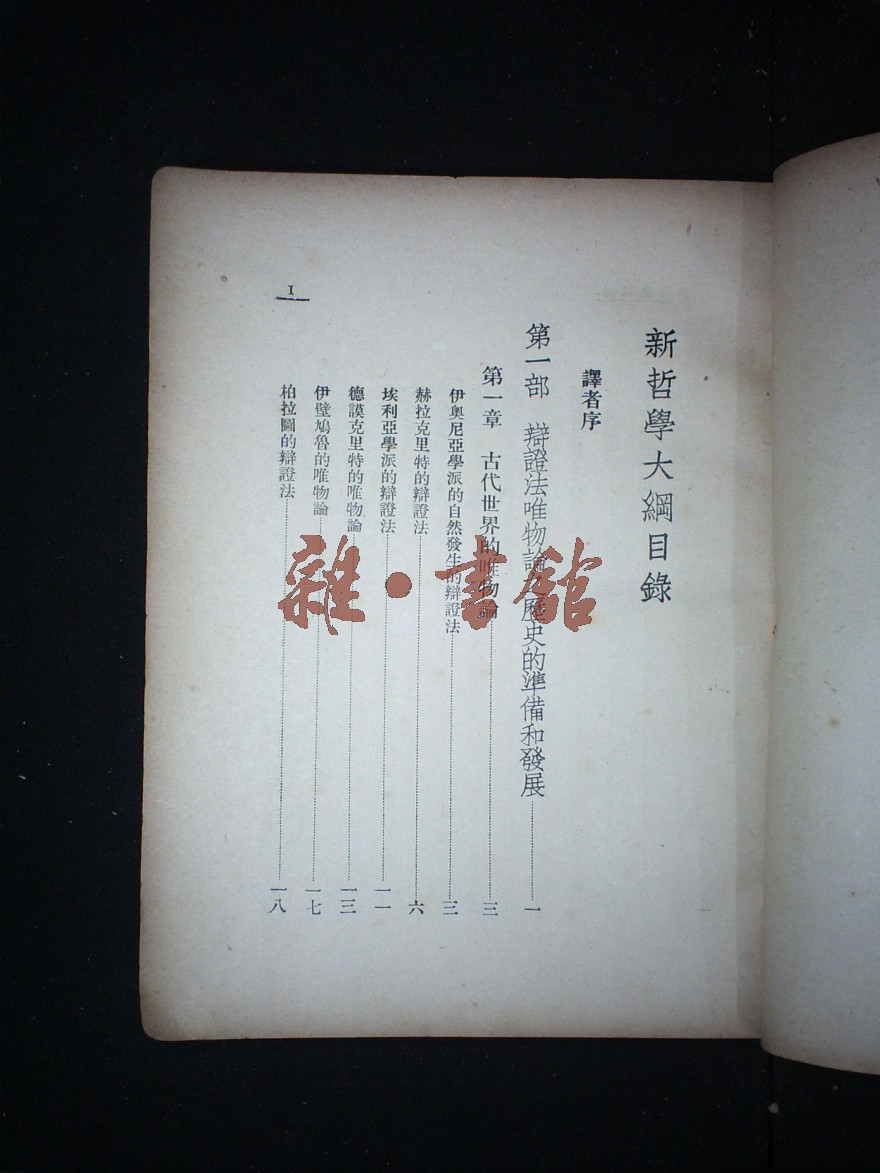 新哲學大綱目錄
譯者序
第一部 辯證法唯物論歷史的準備和發展 一
第一章 古代世界的唯物論 三
伊奧尼亞學派的自然發生的辯證法 三
赫拉克里特的辯證法 六
埃利亞學派的辯證法 一一
德謨克里特的唯物論 一三
伊壁鳩魯的唯物論 一七
柏拉圖的辯證法 一八
I
雜·書館